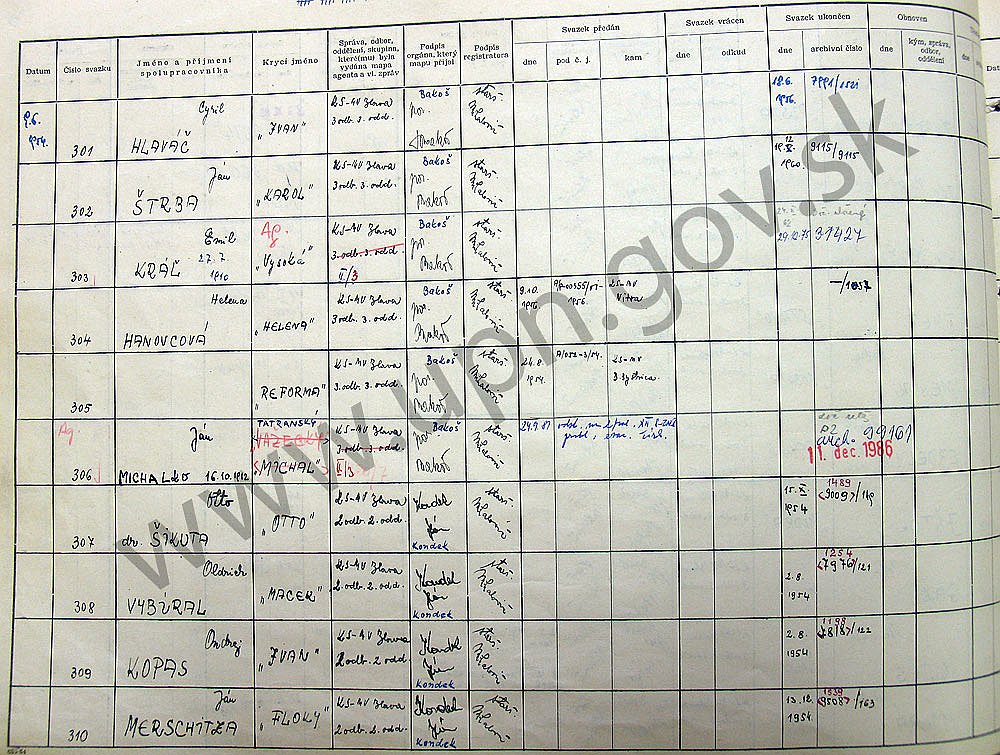 Datum
Číslo svazku
Jméno a příjmení
spolupracovníka
Krycí jméno
Správa, odbor,
oddělení, skupina,
které(mu) byla
vydána mapa
agenta a vl. zpráv
Podpis
orgána, který
mapu přijal
Podpis
registratora
Svazek předán
dne
pod č. j.
kam
Svazek vrácen
dne
odkud
Svazek ukončen
dne
archivní číslo
Obnoven
dne
kým, správa,
odbor,
oddělení
9.6.
1954.
301
Cyril
HLAVÁČ
„IVAN"
KS-MV Ilava
3 odb. 3. odd.
Bakoš
por.
Bakoš
18.6.
1956.
7991/1521
302
Ján
ŠTRBA
„KAROL"
KS-MV Ilava
3 odb. 3. odd.
Bakoš
por.
Bakoš
1960.
9115/9115
303
Emil
KRÁĽ
27.7.
1910
Ag.
„Vysoká"
KS-MV Ilava
3. odb. 3. odd.
II/3
Bakoš
por.
Bakoš
29.12.75
31427
304
Helena
HANOVCOVÁ
„HELENA"
KS-MV Ilava
3 odb. 3. odd.
Bakoš
por.
Bakoš
9.10.
1956
1956.
KS-MV
Nitra
—/1057
305
„REFORMA"
KS-MV Ilava
3. odb. 3. odd.
Bakoš
por.
Bakoš
24.8.
1954.
A/052-3/54.
KS-MV
B. Bystrica.
Ag.
306
Ján
MICHALKO 16.10.1912
TATRANSKÝ
„VAZECKÝ"
„MICHAL"
KS-MV Ilava
3. odb. 3. odd.
II/3
Bakoš
por.
Bakoš
24.9.81
arch. 99161
11. dec. 1986
307
Otto
dr. ŠIKUTA
„OTTO"
KS-MV Ilava
2 odb. 2. odd.
Kondek
Ján
Kondek
15. XI.
1954
1489
(9009)/149
308
Oldrich
VYBÚRAL
„MACER"
KS-MV Ilava
2 odb. 2. odd.
Kondek
Ján
Kondek
2.8.
1954
1254
(7976)/121
309
Ondrej
KOPAS
„IVAN"
KS-MV Ilava
2 odb. 2 odd.
Kondek
Ján
Kondek
2.8.
1954
1198
(7818)/122
310
Ján
MERSCHITZA
„FLOKY"
KS-MV Ilava
2 odb. 2. odd.
Kondek
Ján
Kondek
13.12.
1954.
1539
(9508)/163
www.upn.gov.sk